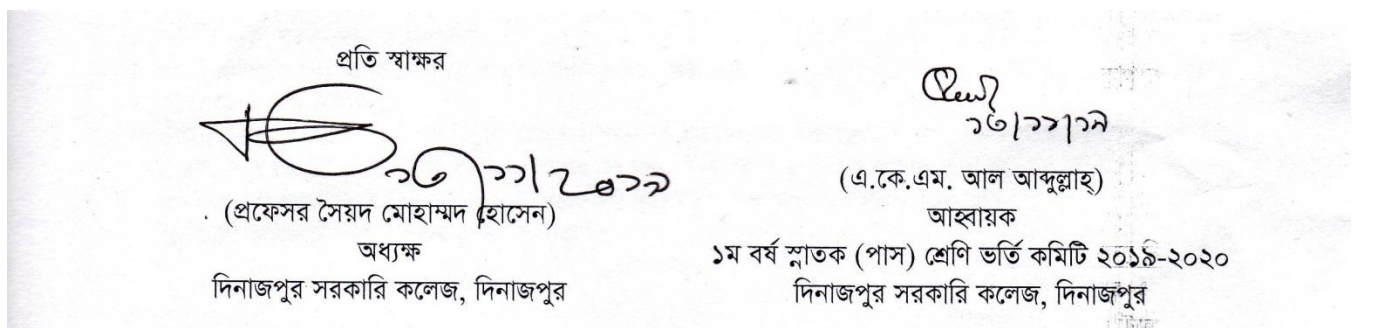 প্রতি স্বাক্ষর
১৩/১১/২০১৯
(প্রফেসর সৈয়দ মোহাম্মদ হোসেন)
অধ্যক্ষ
দিনাজপুর সরকারি কলেজ, দিনাজপুর
১৩/১১/১৯
(এ.কে.এম. আল আব্দুল্লাহ্)
আহ্বায়ক
১ম বর্ষ স্নাতক (পাস) শ্রেণি ভর্তি কমিটি ২০১৯-২০২০
দিনাজপুর সরকারি কলেজ, দিনাজপুর